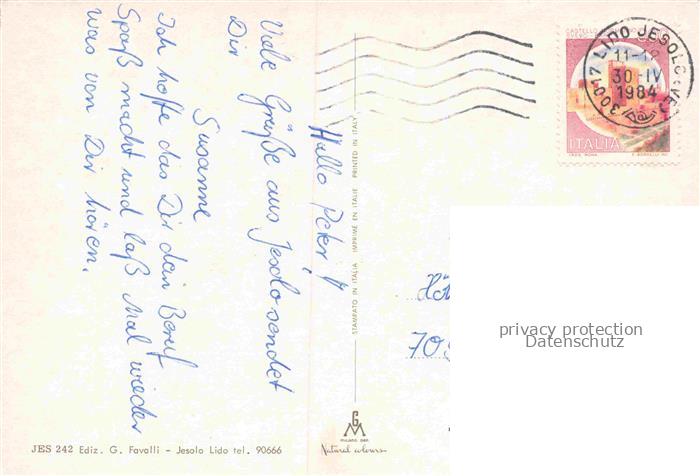 Hallo Peter!
Viele Grüße aus Jesolo sendet
Dir
Susanne
Ich hoffe das Dir dein Beruf
Spaß macht und laß Mal wieder
was von Dir hören.
STAMPATO IN ITALIA IMPRIME EN ITALIE PRINTED IN ITALY
30017 LIDO JESOLO (VE)
11-12
30-IV
1984
ITALIA
70
privacy protection
Datenschutz
G
M
MILANO
Natural colours
JES 242 Ediz. G. Favalli - Jesolo Lido tel. 90666